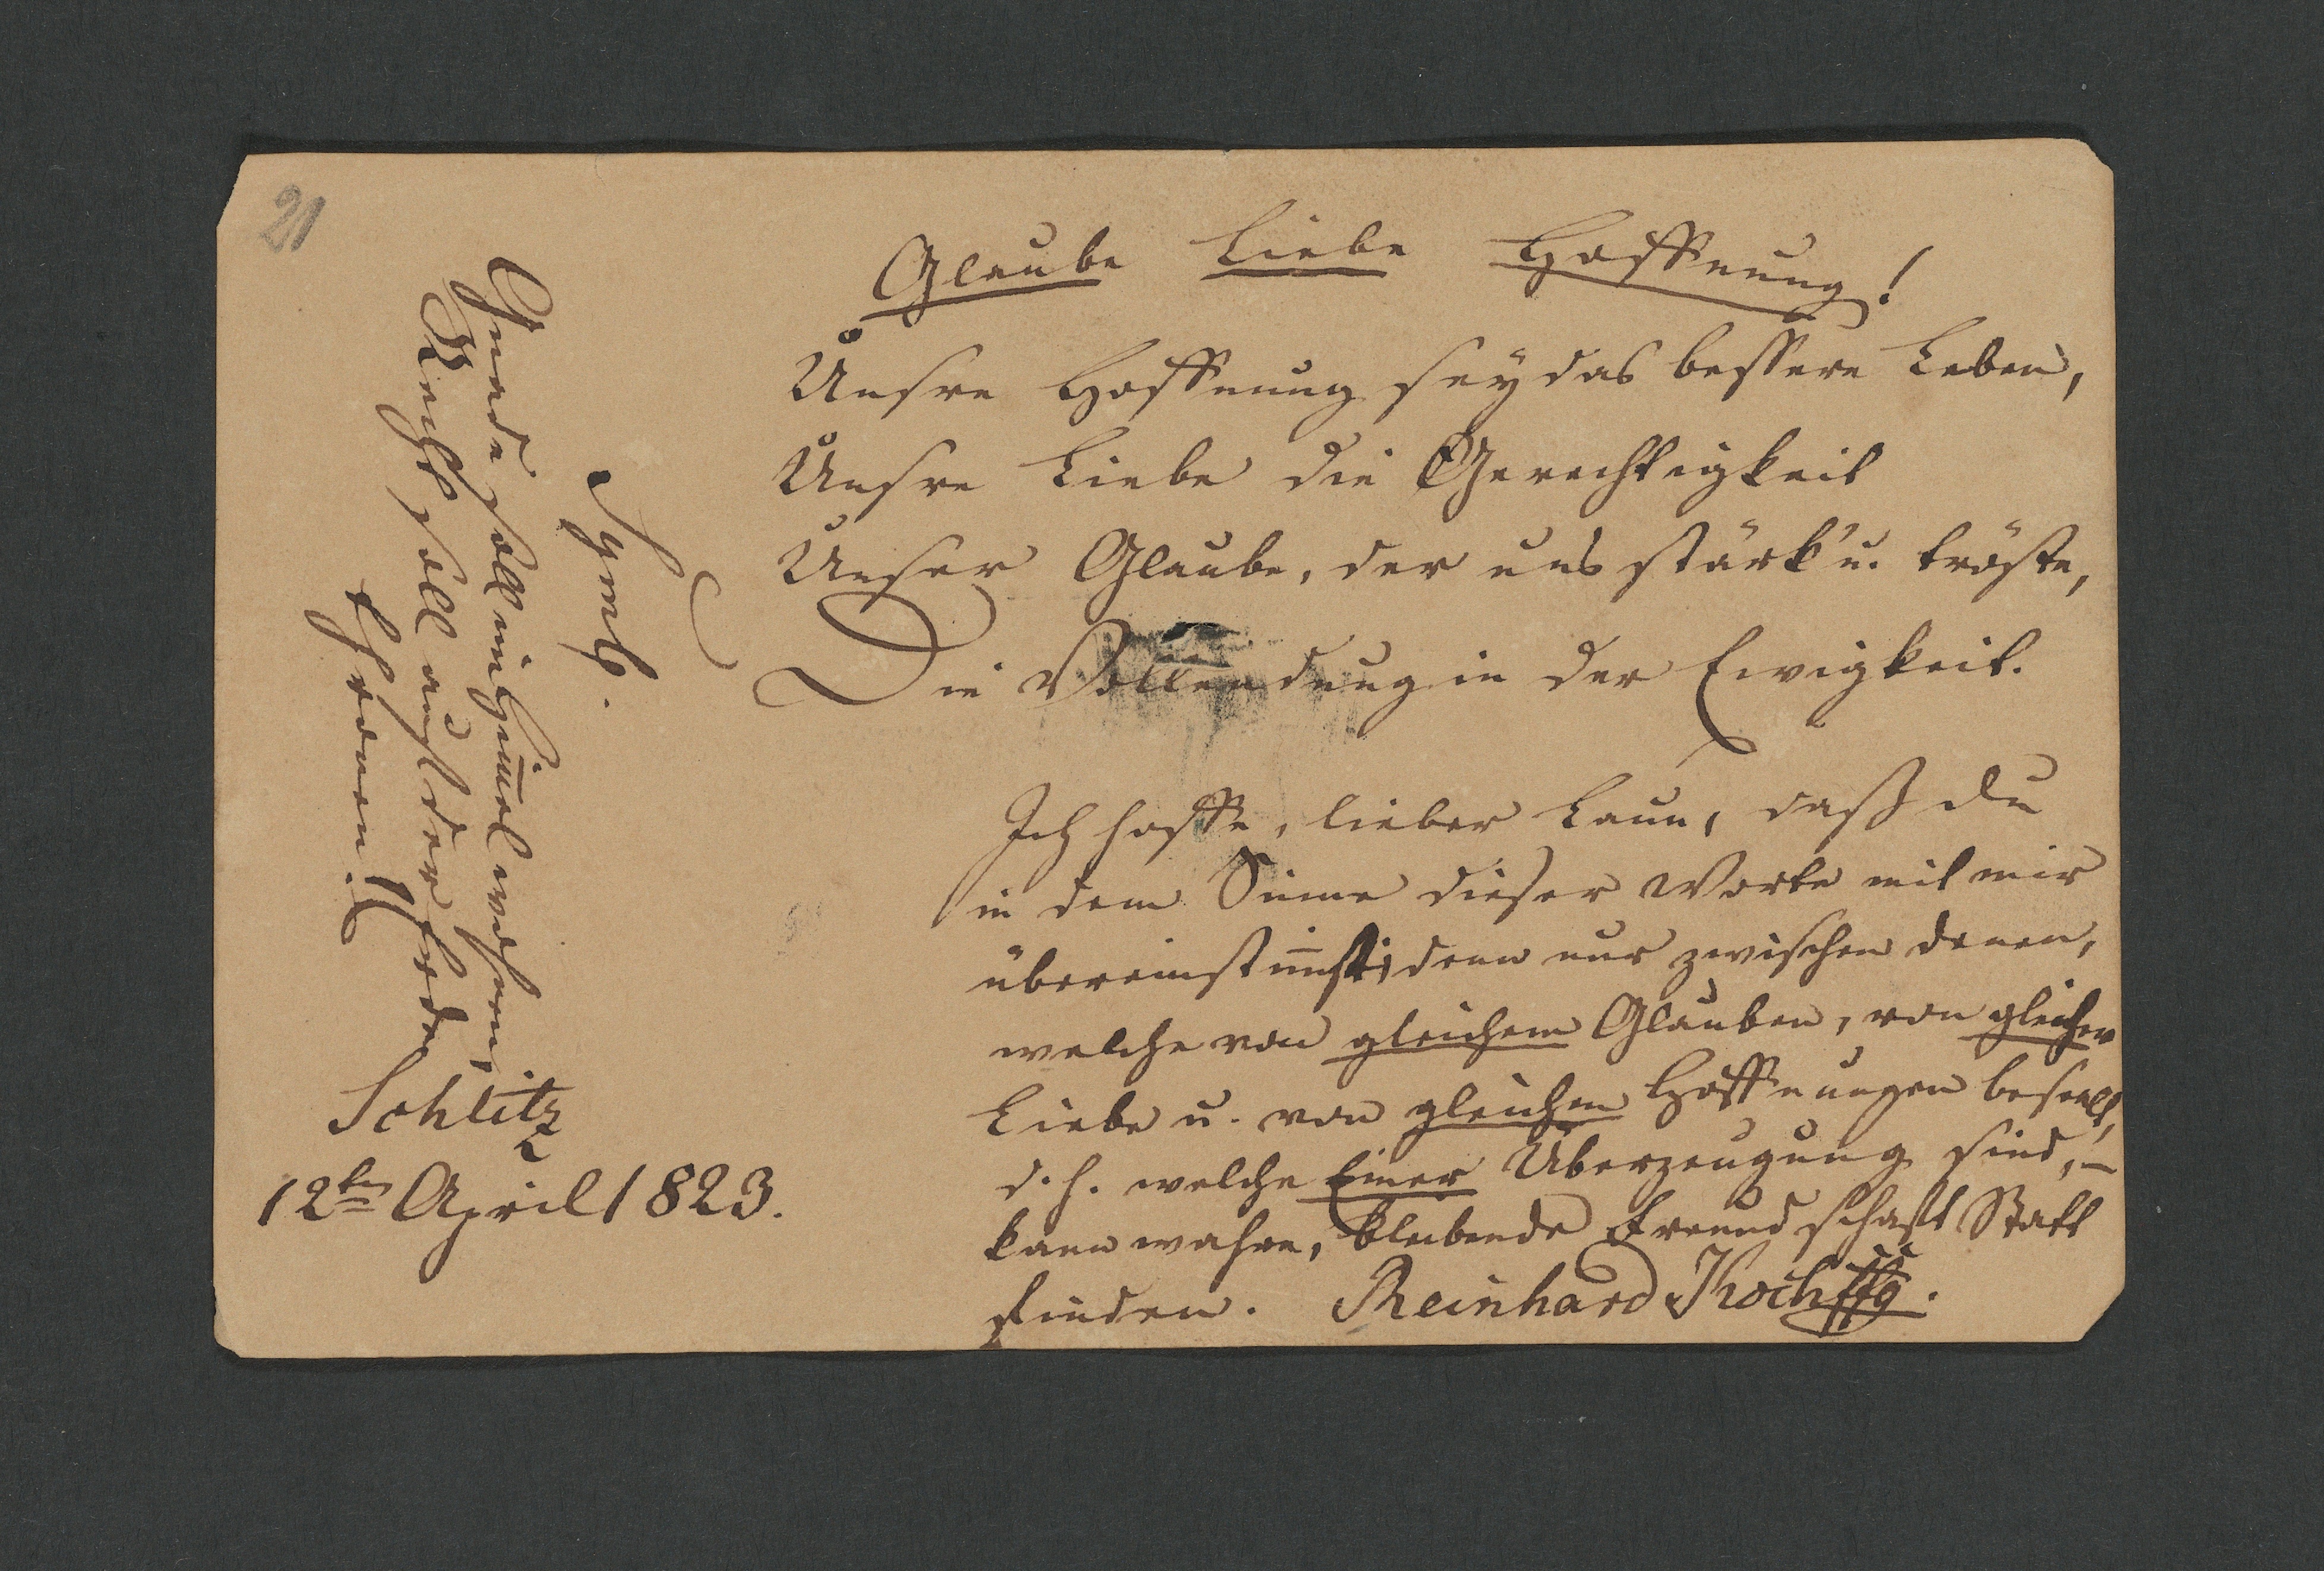 21
Glaube Liebe Hoffnung!
Unsre Hoffnung sey das bessere Leben,
Unsre Liebe die Gerechtigkeit
Unser Glaube, der uns stärk' u. tröste,
Die Vollendung in der Ewigkeit.
Ich hoffe, lieber Laun, daß du
in dem Sinne dieser Worte mit mir
übereinstim̅st; denn nur zwischen denen,
welche von gleichem Glauben, von gleicher
Liebe u. von gleichen Hoffnungen beseelt,
d. h. welche Einer Überzeugung sind, –
kann wahre, bleibende Freundschaft Statt
finden. Reinhard Koch
Symb.
Gnade soll im Him̅el wohnen,
Recht soll auf der Erde
thronen!
Schlitz
12ten April 1823.